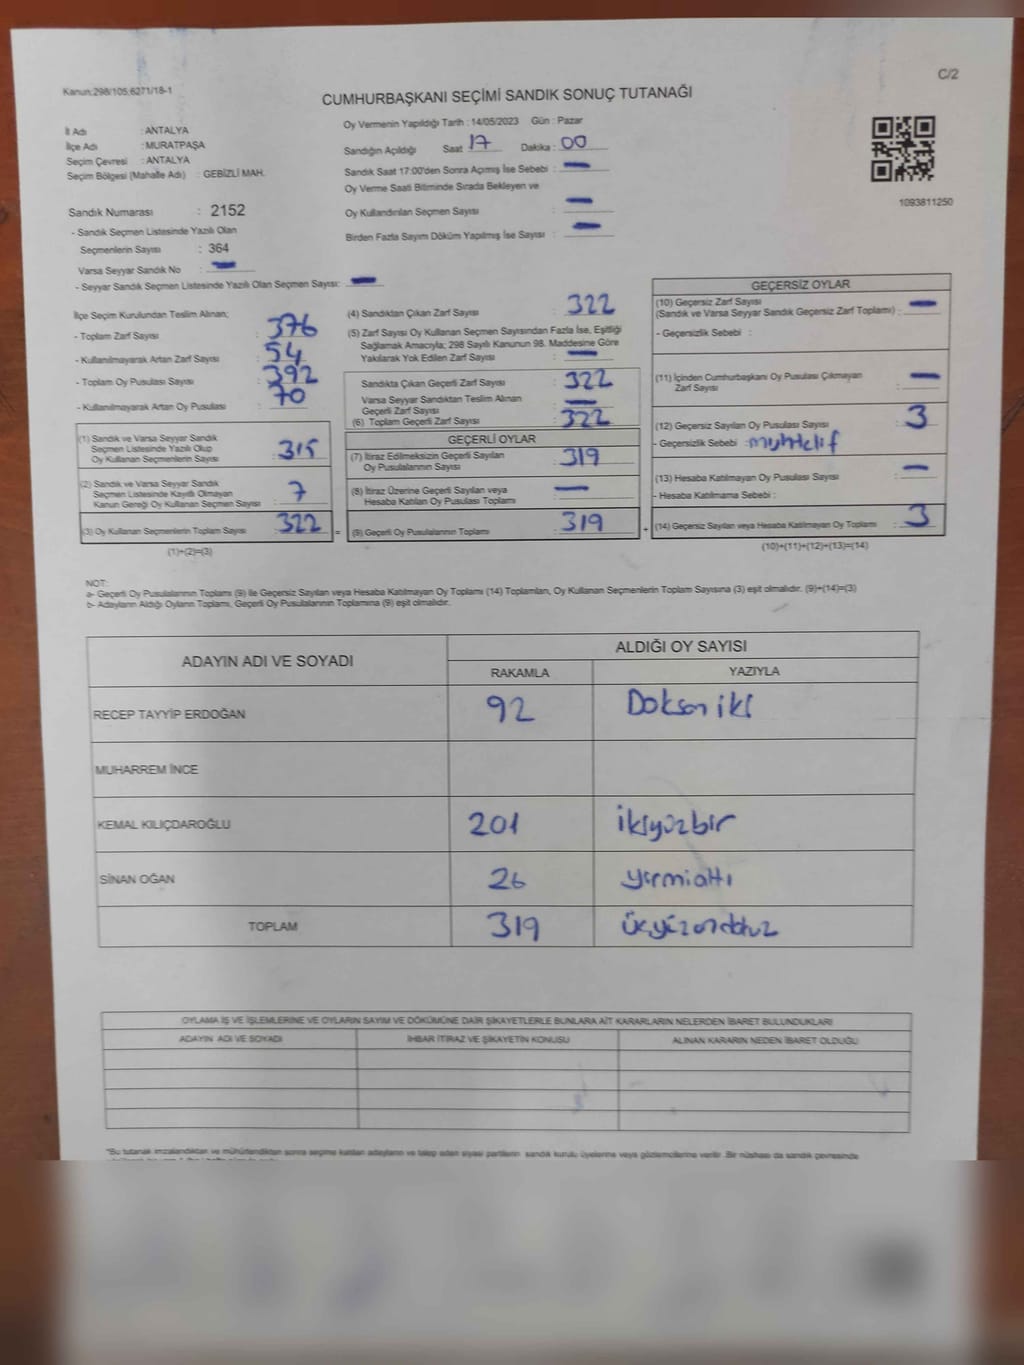 C/2
Kanun:298/105;6271/18-1
CUMHURBAŞKANI SEÇİMİ SANDIK SONUÇ TUTANAĞI
İl Adı : ANTALYA
İlçe Adı : MURATPAŞA
Seçim Çevresi : ANTALYA
Seçim Bölgesi (Mahalle Adı) : GEBİZLİ MAH.
Sandık Numarası : 2152
- Sandık Seçmen Listesinde Yazılı Olan
Seçmenlerin Sayısı : 364
Varsa Seyyar Sandık No : —
- Seyyar Sandık Seçmen Listesinde Yazılı Olan Seçmen Sayısı: —
Oy Vermenin Yapıldığı Tarih : 14/05/2023 Gün : Pazar
Sandığın Açıldığı Saat 17 Dakika : 00
Sandık Saat 17:00'den Sonra Açımış İse Sebebi : —
Oy Verme Saati Bitiminde Sırada Bekleyen ve
Oy Kullandırılan Seçmen Sayısı : —
Birden Fazla Sayım Döküm Yapılmış İse Sayısı : —
1093811250
İlçe Seçim Kurulundan Teslim Alınan;
- Toplam Zarf Sayısı : 376
- Kullanılmayarak Artan Zarf Sayısı : 54
- Toplam Oy Pusulası Sayısı : 392
- Kullanılmayarak Artan Oy Pusulası : 70
(1) Sandık ve Varsa Seyyar Sandık
Seçmen Listesinde Yazılı Olup
Oy Kullanan Seçmenlerin Sayısı : 315
(2) Sandık ve Varsa Seyyar Sandık
Seçmen Listesinde Kayıtlı Olmayan
Kanun Gereği Oy Kullanan Seçmen Sayısı : 7
(3) Oy Kullanan Seçmenlerin Toplam Sayısı : 322
(1)+(2)=(3)
(4) Sandıktan Çıkan Zarf Sayısı : 322
(5) Zarf Sayısı Oy Kullanan Seçmen Sayısından Fazla İse, Eşitliği
Sağlamak Amacıyla; 298 Sayılı Kanunun 98. Maddesine Göre
Yakılarak Yok Edilen Zarf Sayısı : —
Sandıkta Çıkan Geçerli Zarf Sayısı : 322
Varsa Seyyar Sandıktan Teslim Alınan
Geçerli Zarf Sayısı : —
(6) Toplam Geçerli Zarf Sayısı : 322
GEÇERLİ OYLAR
(7) İtiraz Edilmeksizin Geçerli Sayılan
Oy Pusulalarının Sayısı : 319
(8) İtiraz Üzerine Geçerli Sayılan veya
Hesaba Katılan Oy Pusulası Toplamı : —
= (9) Geçerli Oy Pusulalarının Toplamı : 319
GEÇERSİZ OYLAR
(10) Geçersiz Zarf Sayısı
(Sandık ve Varsa Seyyar Sandık Geçersiz Zarf Toplamı) : —
- Geçersizlik Sebebi :
(11) İçinden Cumhurbaşkanı Oy Pusulası Çıkmayan
Zarf Sayısı : —
(12) Geçersiz Sayılan Oy Pusulası Sayısı : 3
- Geçersizlik Sebebi : muhtelif
(13) Hesaba Katılmayan Oy Pusulası Sayısı : —
- Hesaba Katılmama Sebebi :
+ (14) Geçersiz Sayılan veya Hesaba Katılmayan Oy Toplamı : 3
(10)+(11)+(12)+(13)=(14)
NOT:
a- Geçerli Oy Pusulalarının Toplamı (9) ile Geçersiz Sayılan veya Hesaba Katılmayan Oy Toplamı (14) Toplamları, Oy Kullanan Seçmenlerin Toplam Sayısına (3) eşit olmalıdır. (9)+(14)=(3)
b- Adayların Aldığı Oyların Toplamı, Geçerli Oy Pusulalarının Toplamına (9) eşit olmalıdır.
ADAYIN ADI VE SOYADI
ALDIĞI OY SAYISI
RAKAMLA YAZIYLA
RECEP TAYYİP ERDOĞAN 92 Doksan iki
MUHARREM İNCE
KEMAL KILIÇDAROĞLU 201 ikiyüzbir
SİNAN OĞAN 26 yirmialtı
TOPLAM 319 üçyüzondokuz
OYLAMA İŞ VE İŞLEMLERİNE VE OYLARIN SAYIM VE DÖKÜMÜNE DAİR ŞİKAYETLERLE BUNLARA AİT KARARLARIN NELERDEN İBARET BULUNDUKLARI
ADAYIN ADI VE SOYADI İHBAR İTİRAZ VE ŞİKAYETİN KONUSU ALINAN KARARIN NEDEN İBARET OLDUĞU
"Bu tutanak imzalandıktan ve mühürlendikten sonra seçime katılan adayların ve talep eden siyasi partilerin sandık kurulu üyelerine veya gözlemcilerine verilir. Bir nüshası da sandık çevresinde